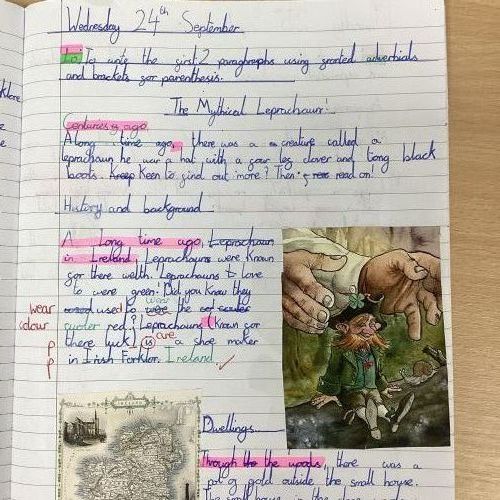 Wednesday 24th September
Lo To write the first 2 paragraphs using fronted adverbials
and brackets for parenthesis.
The Mythical Leprechaun!
Centuries ago
A long time ago, there was a creature called a
leprechaun he war a hat with a four leg clover and long black
boots. Keep Keen to find out more? Then read on!
History and background
A long time ago, Leprechaun
in Ireland, Leprechauns were known
for there welth. Leprechauns love
to were green! Did you know they
wear used to were the
colour red? Leprechauns (known for
there luck) is are a shoe maker
p in Irish Forklor. Ireland ✓
p
Dwellings
Through the woods, there was a
pot of gold outside the small house.
The small house in the